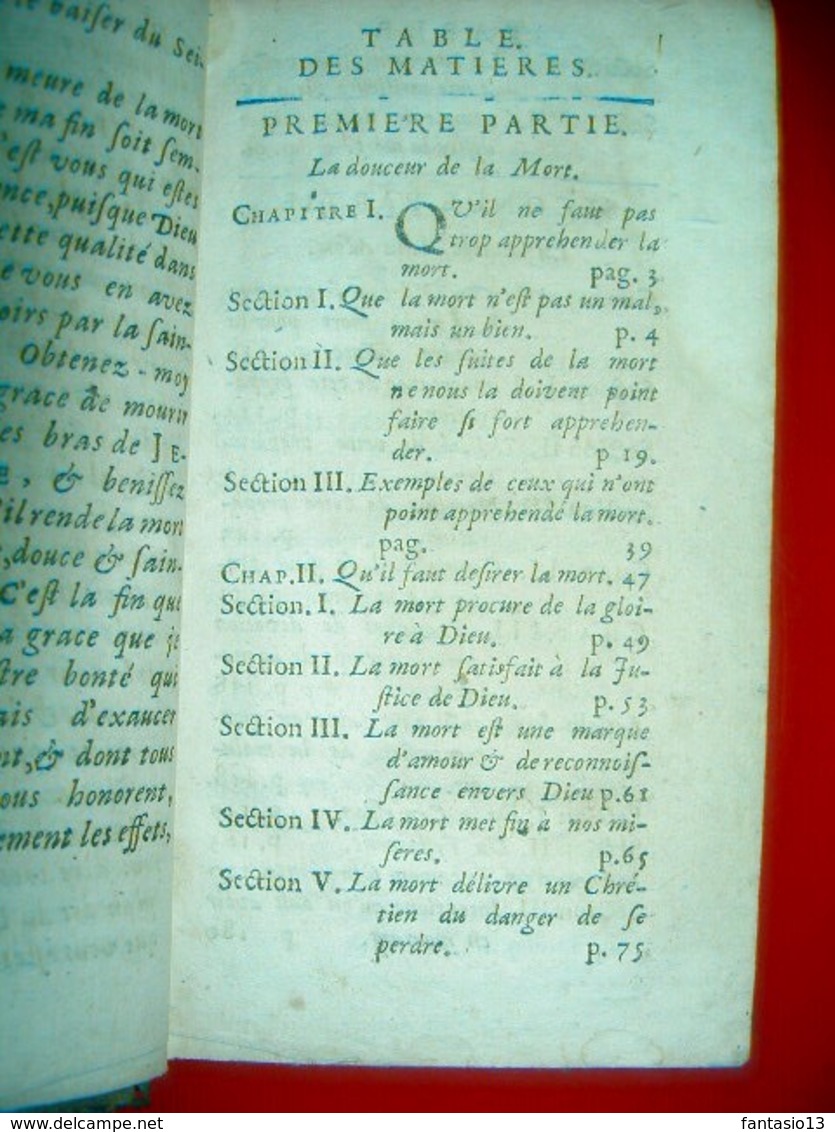 le baiſer du Sei-
meure de la mort
ma fin ſoit ſem-
'eſt vous qui eſtes
nce, puiſque Dieu
ette qualité dans
e vous en avez
oirs par la ſain-
Obtenez-moy
grace de mourir
es bras de JE-
E, & beniſſez
'il rende la mort
, douce & ſain-
C'eſt la fin que
a grace que je
ſtre bonté qui
ais d'exaucer
nt, & dont tous
ous honorent,
ement les effets,
TABLE.
DES MATIERES.
PREMIERE PARTIE.
La douceur de la Mort.
CHAPITRE I. QU'il ne faut pas
trop apprehender la
mort. pag. 3
Section I. Que la mort n'eſt pas un mal,
mais un bien. p. 4
Section II. Que les ſuites de la mort
ne nous la doivent point
faire ſi fort apprehen-
der. p 19.
Section III. Exemples de ceux qui n'ont
point apprehendé la mort.
pag. 39
CHAP. II. Qu'il faut deſirer la mort. 47
Section. I. La mort procure de la gloi-
re à Dieu. p. 49
Section II. La mort ſatisfait à la Ju-
ſtice de Dieu. p. 53
Section III. La mort eſt une marque
d'amour & de reconnoiſ-
ſance envers Dieu p. 61
Section IV. La mort met fin à nos mi-
ſeres. p. 65
Section V. La mort délivre un Chré-
tien du danger de ſe
perdre. p. 75
fantasio13